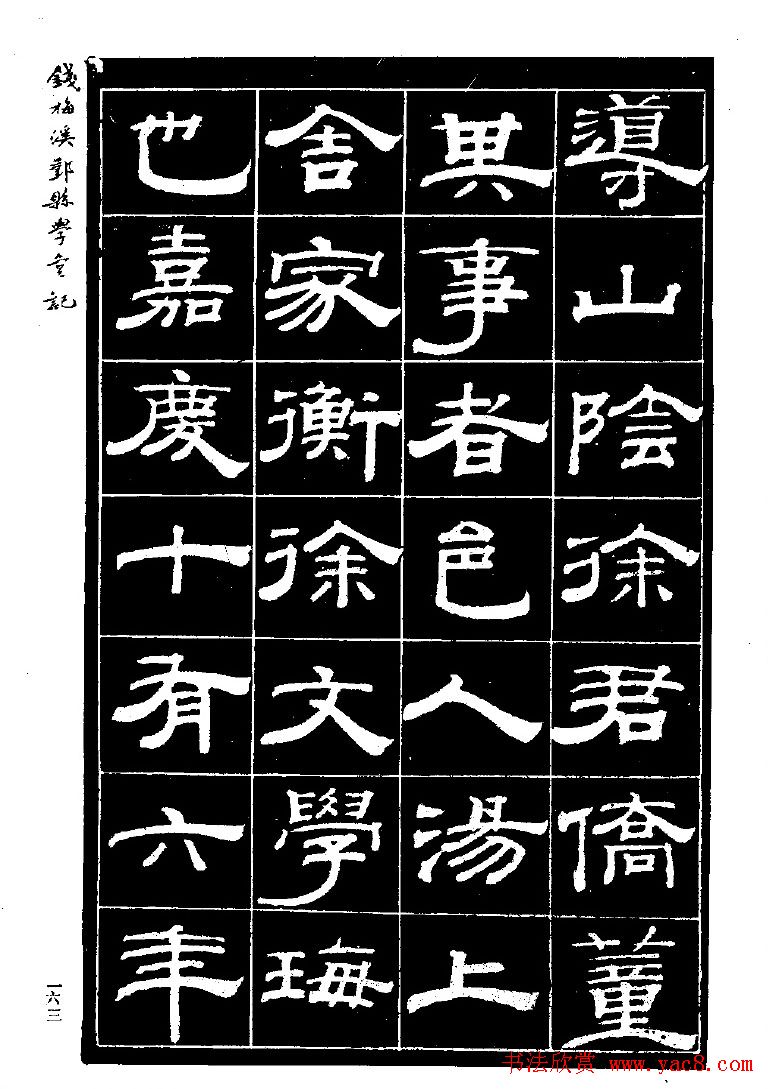 導山陰徐君僑董
其事者邑人湯上
舍家衡徐文學
也嘉慶十有六年
錢梅溪鄞縣學重記
一六三
书法欣赏 www.yac8.com